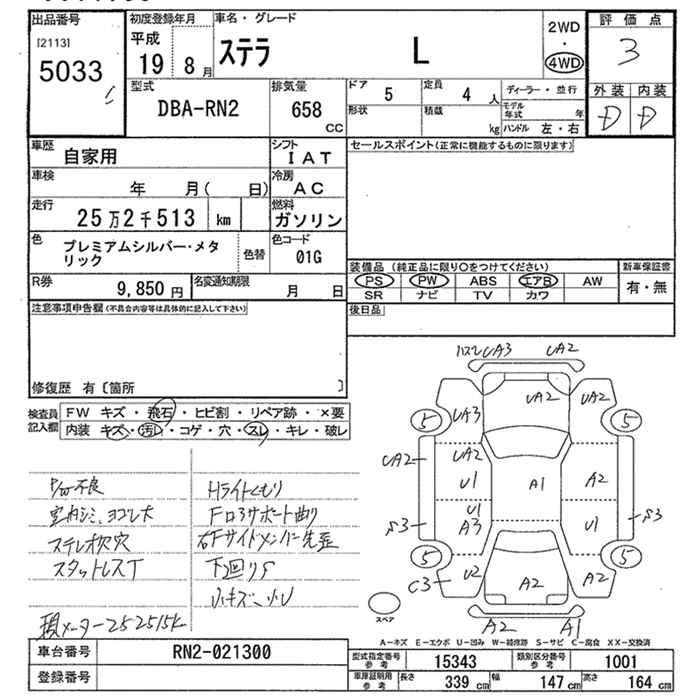 出品番号
[2113]
5033
初度登録年月
平成
19 8月
車名・グレード
ステラ L
2WD
・
4WD
評価点
3
外装 内装
D D
型式
DBA-RN2
排気量
658
CC
ドア 5
定員 4 人
形状
積載
kg
ディーラー・並行
モデル年式 年
ハンドル 左・右
車歴
自家用
シフト
IAT
車検
年 月( 日)
冷房
AC
走行
25万2千513 km
燃料
ガソリン
色
プレミアムシルバー・メタリック
色替
色コード
01G
R券
9,850 円
名変通知期限
月 日
セールスポイント(正常に機能するものに限ります)
装備品 (純正品に限り○をつけてください)
PS PW ABS エアB AW
SR ナビ TV カワ
新車保証書
有・無
後日品
注意事項申告欄(不具合内容等は具体的に記入して下さい)
修復歴 有〔箇所 〕
検査員記入欄
FW キズ・飛石・ヒビ割・リペア跡・×要
内装 キズ・汚れ・コゲ・穴・スレ・キレ・破レ
P/W不良
室内シミ、ヨゴレ大
ステレオ欠穴
スタットレスT
現メーター252515K
Hライトくもり
Fロアサポート曲り
右Fサイドメンバー先歪
下回りS
小キズ、小U
UA3 UA2
5 UA3 UA2 UA2 5
UA2 UA2
U1 A1 A2
U1
S3 A3 U1 S3
5 5
C3 U2 A2 A2
スペア
A2 A1
A−キズ E−エクボ U−凹み W−補修跡 S−サビ C−腐食 XX−交換済
車台番号
RN2-021300
登録番号
型式指定番号
参考
15343
類別区分番号
参考
1001
車庫証明用
参考
長さ 339 cm
幅 147 cm
高さ 164 cm